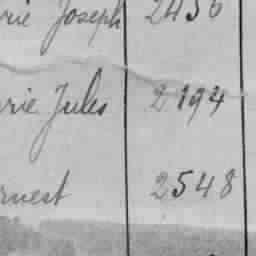 rie Joseph 2436
rie Jules 2194
rnest 2548